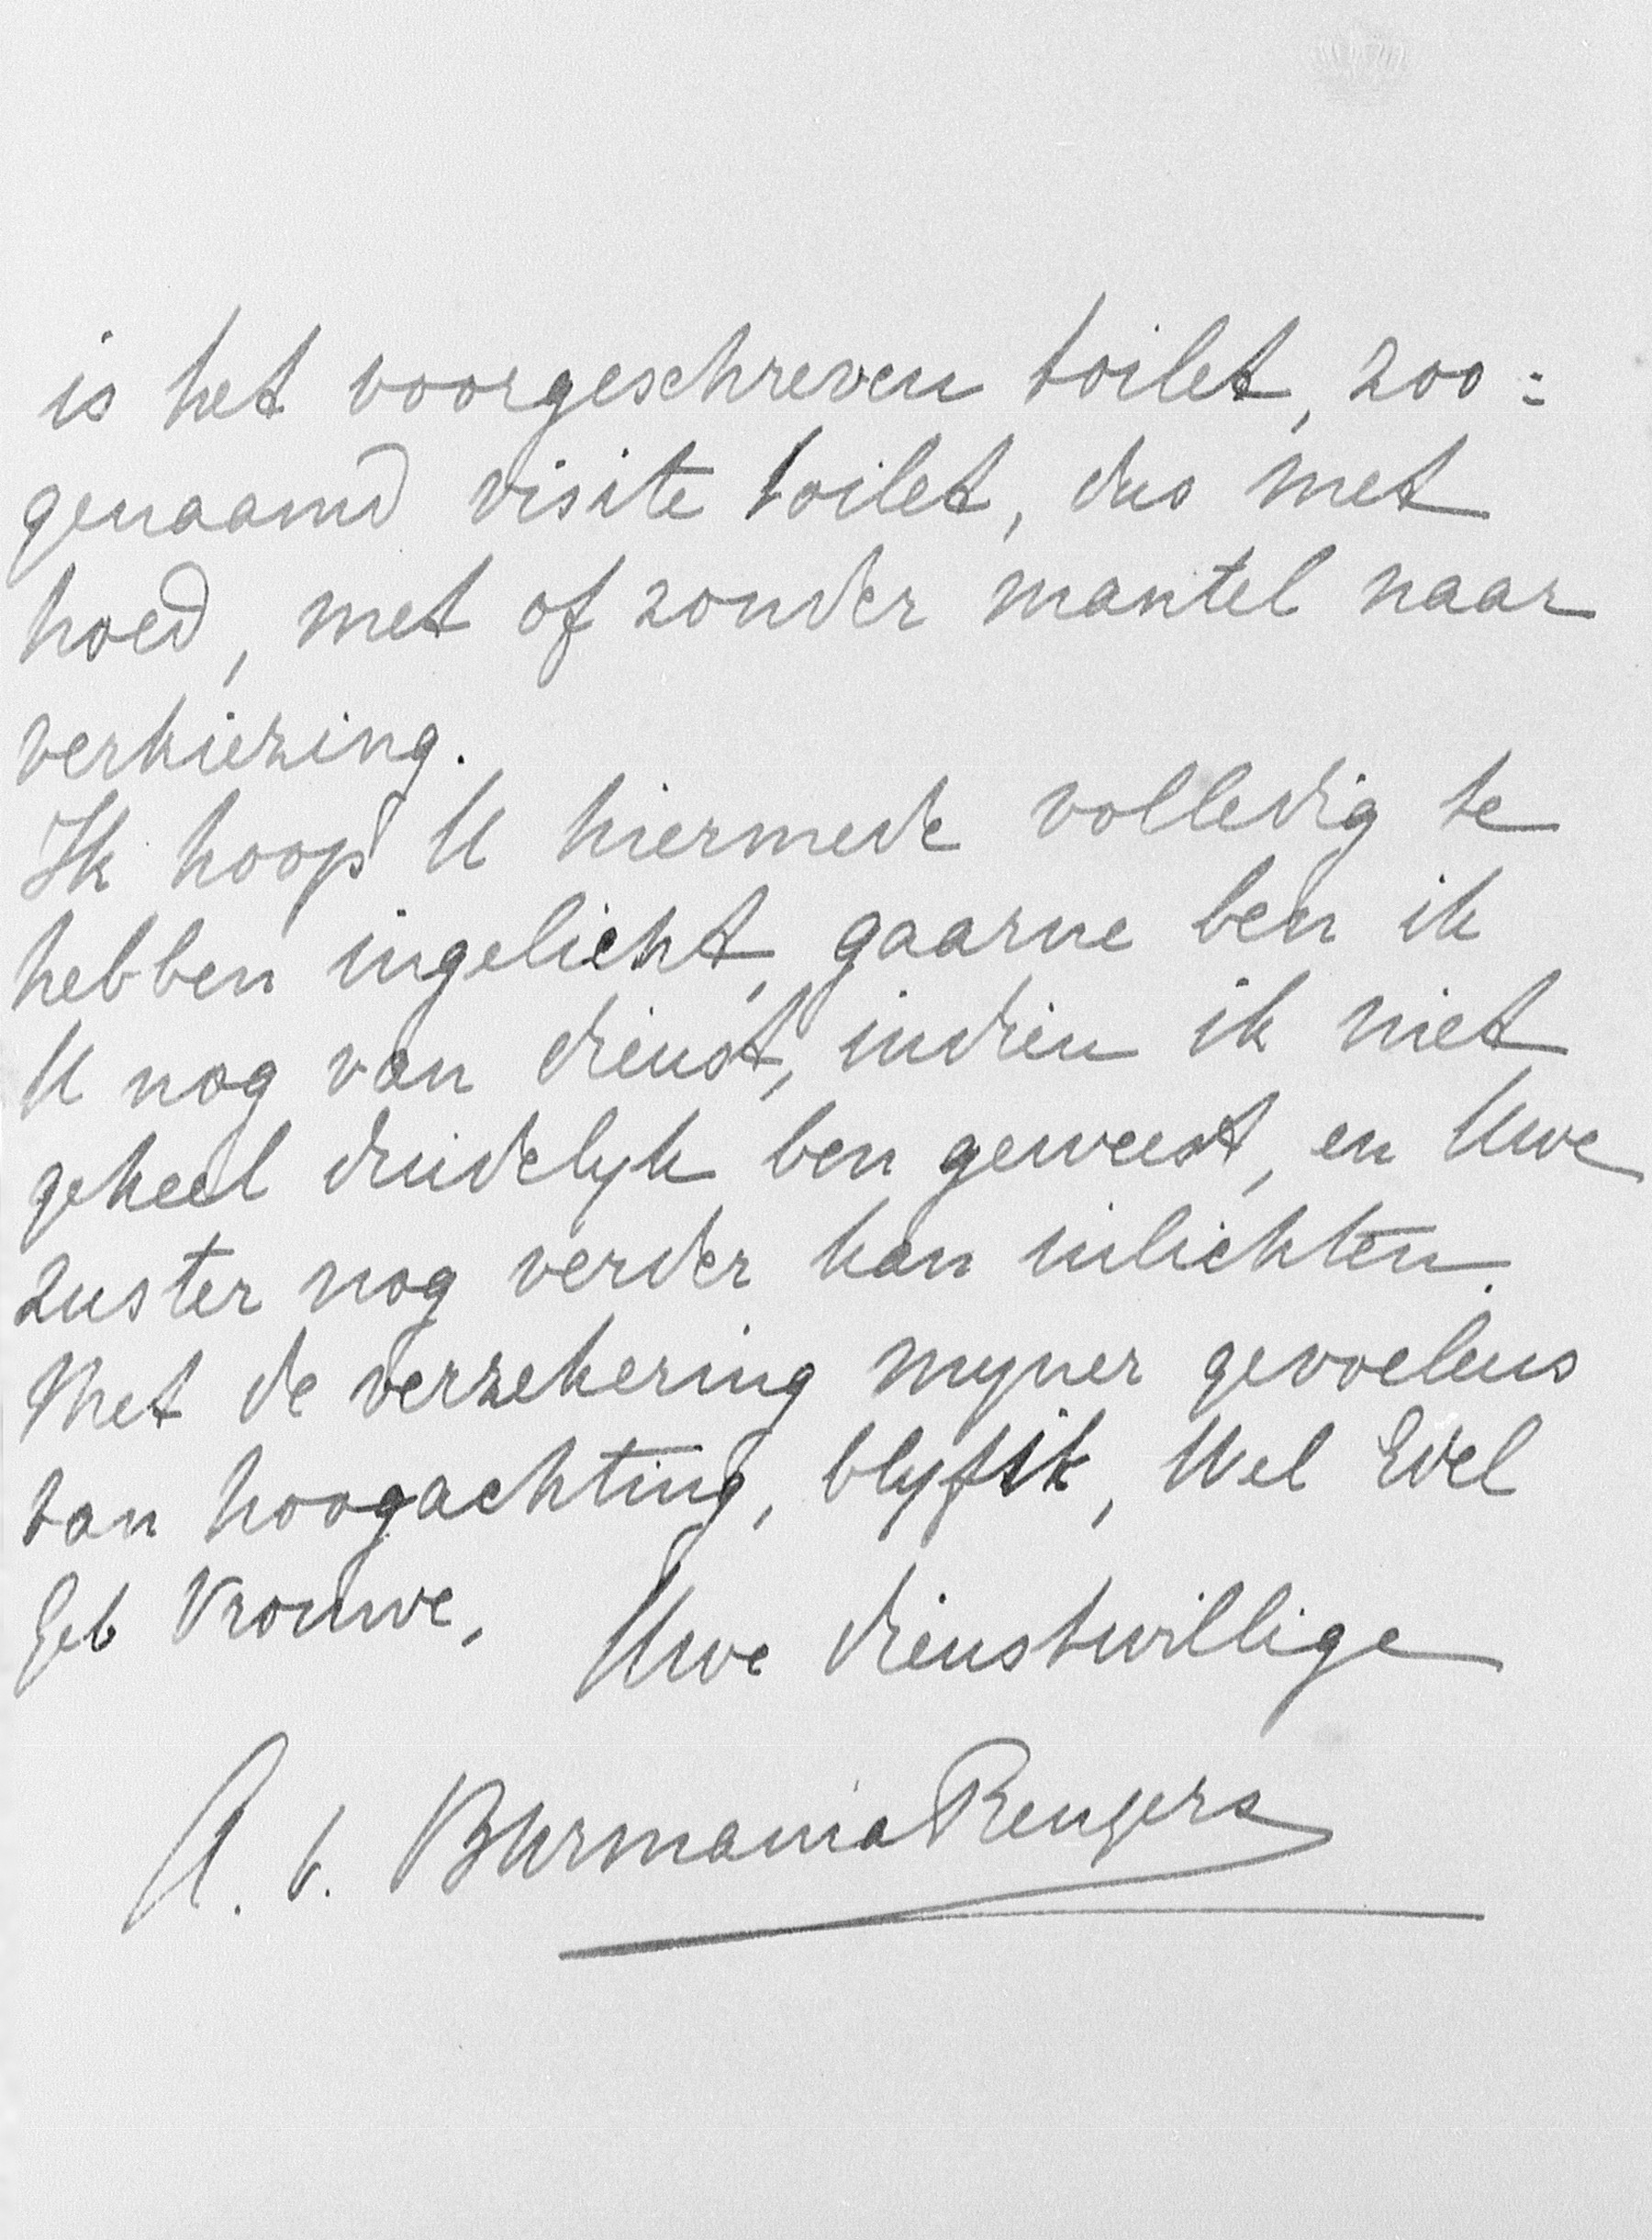 is het voorgeschreven toilet, zoo=
genaamd visite toilet, dus met
hoed, met of zonder mantel naar
verkiezing.
Ik hoop U hiermede volledig te
hebben ingelicht, gaarne ben ik
U nog van dienst, indien ik niet
geheel duidelyk ben geweest, en Uwe
zuster nog verder kan inlichten.
Met de verzekering myner gevoelens
van hoogachting, blyf ik, Wel Edel
Geb Vrouwe,   Uwe dienstwillige
A. v. Burmania Rengers